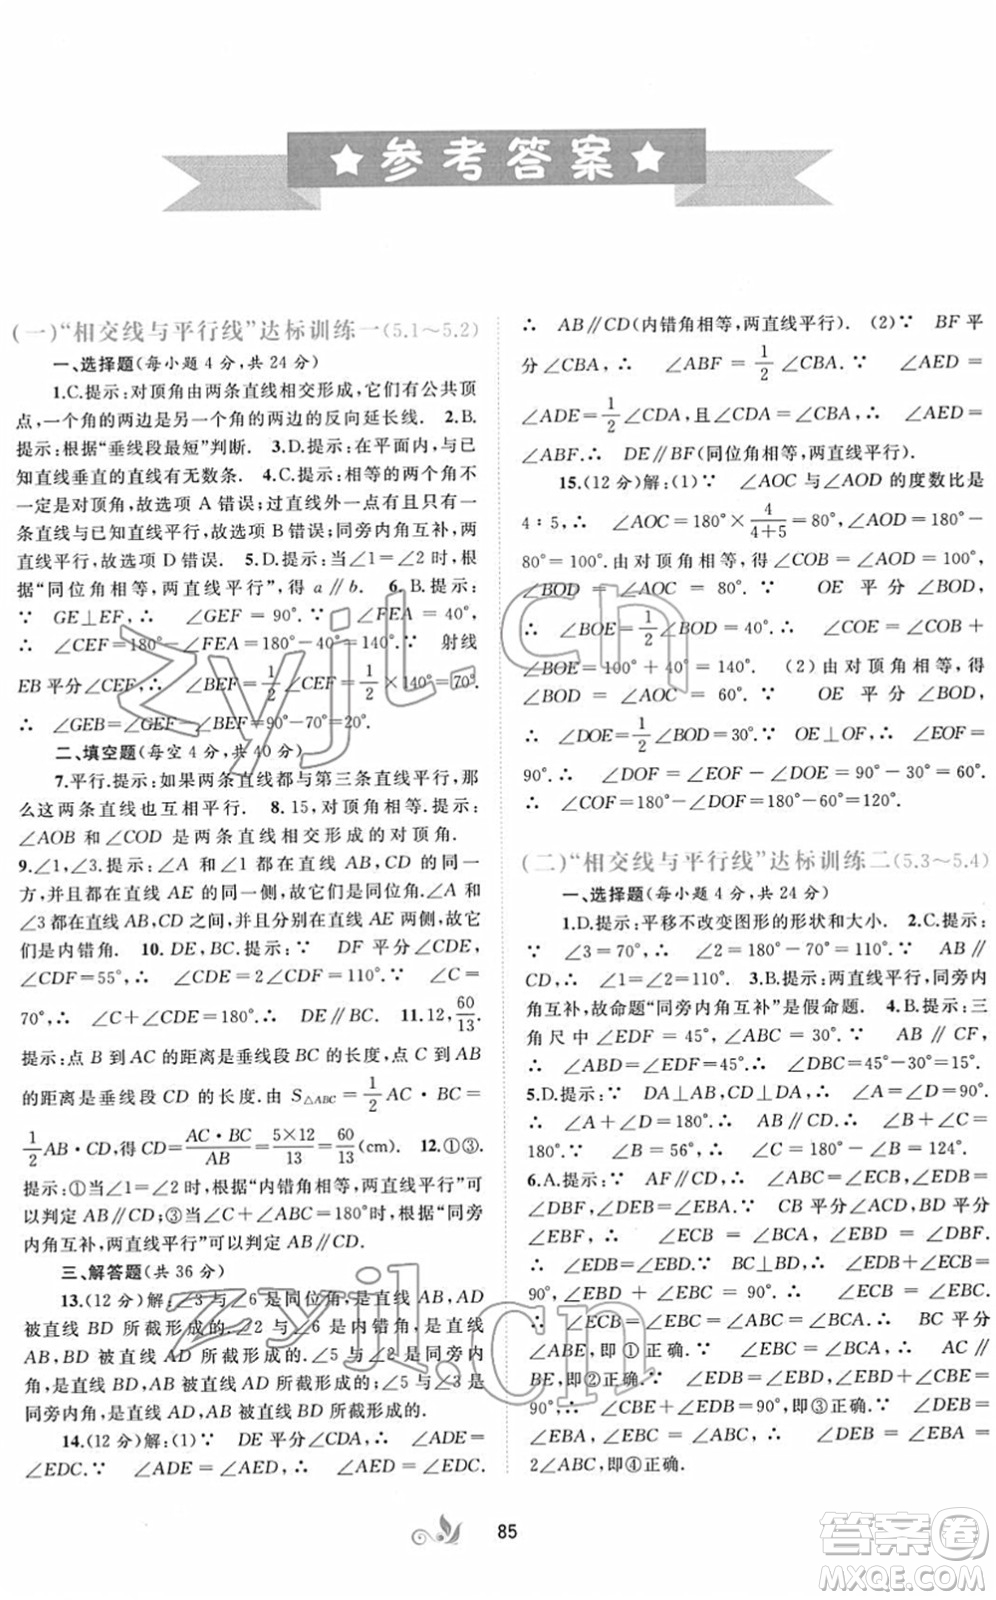 参考答案
(一)“相交线与平行线”达标训练一(5.1～5.2)
一、选择题(每小题 4 分,共 24 分)
1.C.提示:对顶角由两条直线相交形成,它们有公共顶
点,一个角的两边是另一个角的两边的反向延长线. 2.B.
提示:根据“垂线段最短”判断. 3.D.提示:在平面内,与已
知直线垂直的直线有无数条. 4.C.提示:相等的两个角不
一定是对顶角,故选项 A 错误;过直线外一点有且只有一
条直线与已知直线平行,故选项 B 错误;同旁内角互补,两
直线平行,故选项 D 错误. 5.D.提示:当∠1=∠2 时,根
据“同位角相等,两直线平行”,得 a∥b. 6.B.提示:
∵ GE⊥EF,∴ ∠GEF = 90°.∵ ∠FEA = 40°,
∴ ∠CEF=180°-∠FEA=180°-40°=140°.∵ 射线
EB 平分∠CEF,∴ ∠BEF=1/2∠CEF=1/2×140°=70°.
∴ ∠GEB=∠GEF-∠BEF=90°-70°=20°.
二、填空题(每空 4 分,共 40 分)
7.平行.提示:如果两条直线都与第三条直线平行,那
么这两条直线也互相平行. 8.15,对顶角相等.提示:
∠AOB 和∠COD 是两条直线相交形成的对顶角.
9.∠1,∠3.提示:∠A 和∠1 都在直线 AB,CD 的上方,
并且都在直线 AE 的同一侧,故它们是同位角;∠A 和
∠3 都在直线 AB,CD 之间,并且分别在直线 AE 两侧,故它
们是内错角. 10. DE,BC.提示:∵ DF 平分∠CDE,
∠CDF=55°,∴ ∠CDE=2∠CDF=110°.∵ ∠C=
70°,∴ ∠C+∠CDE=180°.∴ DE∥BC. 11.12,60/13.
提示:点 B 到 AC 的距离是垂线段 BC 的长度,点 C 到 AB
的距离是垂线段 CD 的长度.由 S△ABC=1/2AC·BC=
1/2AB·CD,得 CD=AC·BC/AB=5×12/13=60/13(cm). 12.①③.
提示:①当∠1=∠2 时,根据“内错角相等,两直线平行”可
以判定 AB∥CD;③当∠C+∠ABC=180°时,根据“同旁
内角互补,两直线平行”可以判定 AB∥CD.
三、解答题(共 36 分)
13.(12 分)解:∠3 与∠6 是同位角,是直线 AB,AD
被直线 BD 所截形成的.∠2 与∠6 是内错角,是直线
AB,BD 被直线 AD 所截形成的.∠5 与∠8 是同旁内
角,是直线 BD,AD 被直线 AB 所截形成的;∠5 与∠6 是
同旁内角,是直线 AD,AB 被直线 BD 所截形成的.
14.(12 分)解:(1)∵ DE 平分∠CDA,∴ ∠ADE=
∠EDC.∵ ∠ADE = ∠AED,∴ ∠AED = ∠EDC.
∴ AB∥CD(内错角相等,两直线平行). (2)∵ BF 平
分∠CBA,∴ ∠ABF = 1/2∠CBA.∵ ∠AED =
∠ADE=1/2∠CDA,且∠CDA=∠CBA,∴ ∠AED=
∠ABF.∴ DE∥BF(同位角相等,两直线平行).
15.(12 分)解:(1)∵ ∠AOC 与∠AOD 的度数比是
4∶5,∴ ∠AOC=180°×4/(4+5)=80°,∠AOD=180°-
80°=100°.由对顶角相等,得∠COB=∠AOD=100°,
∠BOD = ∠AOC = 80°.∵ OE 平分∠BOD,
∴ ∠BOE=1/2∠BOD=40°.∴ ∠COE=∠COB+
∠BOE=100°+40°=140°. (2)由对顶角相等,得
∠BOD = ∠AOC = 60°.∵ OE 平分∠BOD,
∴ ∠DOE=1/2∠BOD=30°.∵ OE⊥OF,∴ ∠EOF=
90°.∴ ∠DOF=∠EOF-∠DOE=90°-30°=60°.
∴ ∠COF=180°-∠DOF=180°-60°=120°.
(二)“相交线与平行线”达标训练二(5.3～5.4)
一、选择题(每小题 4 分,共 24 分)
1.D.提示:平移不改变图形的形状和大小. 2.C.提示:
∵ ∠3=70°,∴ ∠2=180°-70°=110°.∵ AB∥
CD,∴ ∠1=∠2=110°. 3.B.提示:两直线平行,同旁内
角互补,故命题“同旁内角互补”是假命题. 4.B.提示:三
角尺中∠EDF=45°,∠ABC=30°.∵ AB∥CF,
∴ ∠ABD=∠EDF=45°.∴ ∠DBC=45°-30°=15°.
5.D.提示:∵ DA⊥AB,CD⊥DA,∴ ∠A=∠D=90°.
∴ ∠A+∠D=180°.∴ AB∥CD.∴ ∠B+∠C=
180°.∵ ∠B = 56°,∴ ∠C = 180° - ∠B = 124°.
6.A.提示:∵ AF∥CD,∴ ∠ABC=∠ECB,∠EDB=
∠DBF,∠DEB=∠EBA.∵ CB 平分∠ACD,BD 平分
∠EBF,∴ ∠ECB=∠BCA,∠EBD=∠DBF.
∴ ∠EDB=∠EBD.∵ BC⊥BD,∴ ∠EDB+∠ECB=
90°,∠EBD+∠EBC=90°.∴ ∠ECB=∠EBC.
∴ ∠ECB=∠EBC=∠ABC=∠BCA.∴ BC 平分
∠ABE,即①正确.∵ ∠EBC=∠BCA,∴ AC∥
BE,即②正确.∴ ∠BCD+∠D=∠ECB+∠EDB=
90°,即③正确.∵ ∠DEB=
∠EBA,∠EBC=∠ABC=1/2∠EBA,∴ ∠DEB=∠EBA=
2∠ABC,即④正确.
85
zyjl.cn
zyjl.cn
答案圈
MXQE.COM